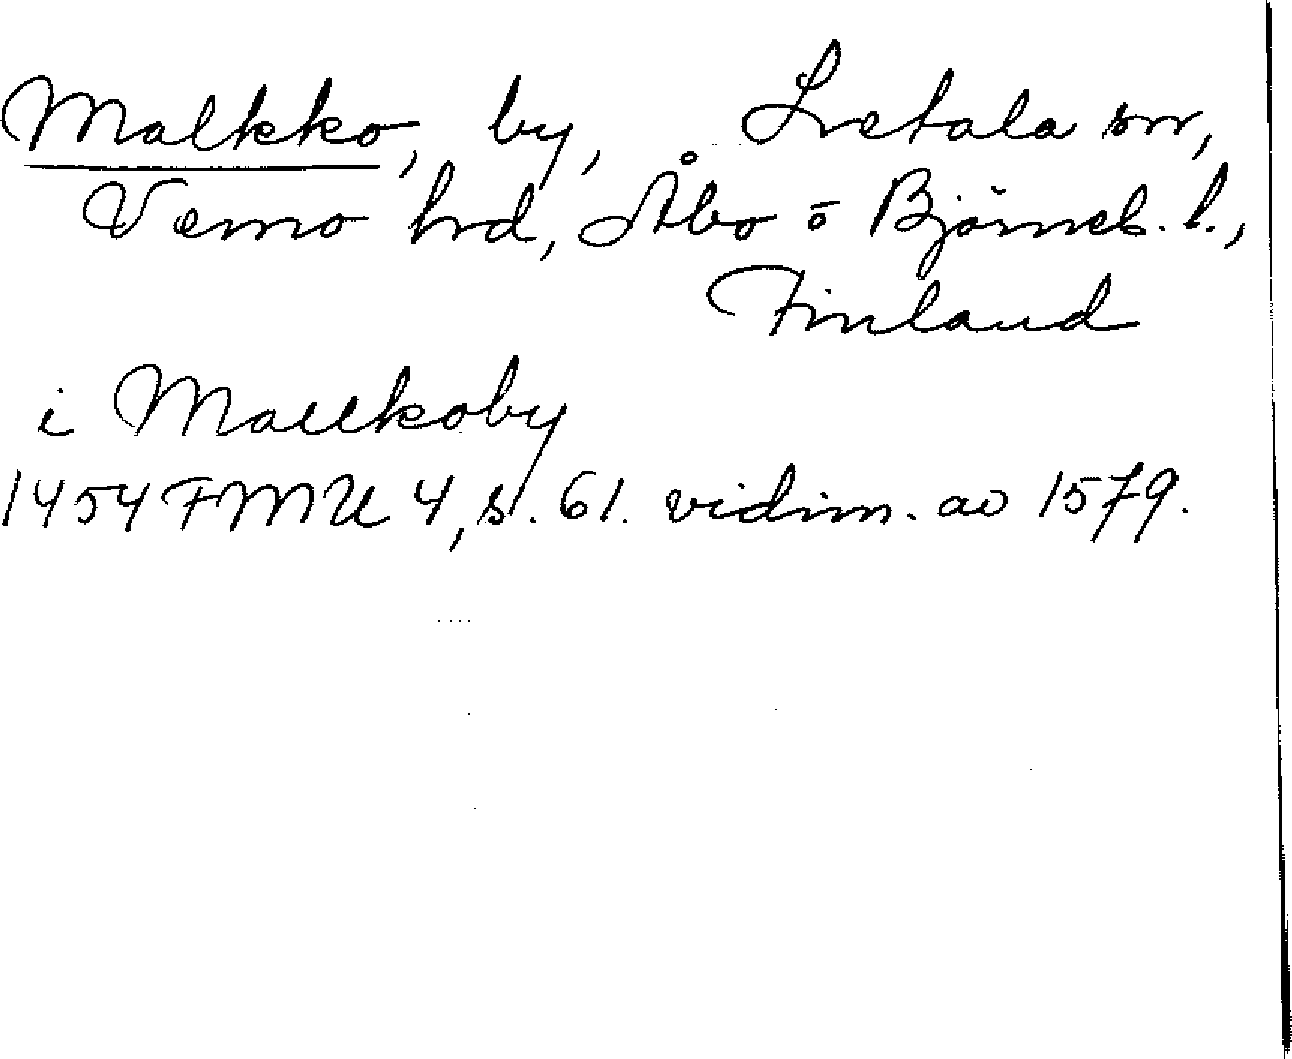 Malkko, by, Letala sn,
Vemo hrd, Åbo o Björneb. l.,
Finland
i Mallkoby
1454 FMU 4, s. 61. vidim. av 1579.